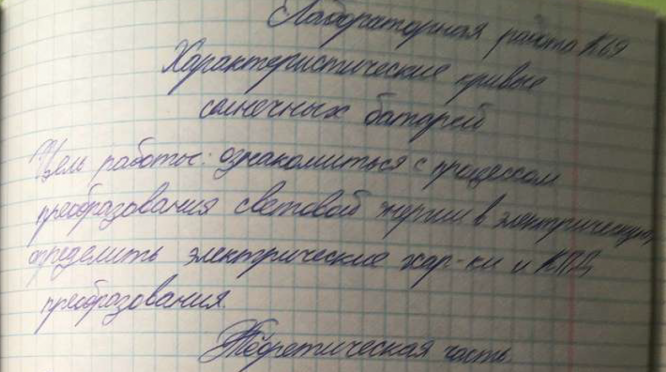 Лабораторная работа №9
Характеристические кривые
солнечных батарей
Цель работы: ознакомиться с процессом
преобразования световой энергии в электрическую,
определить электрические хар-ки и КПД
преобразования.
Теоретическая часть